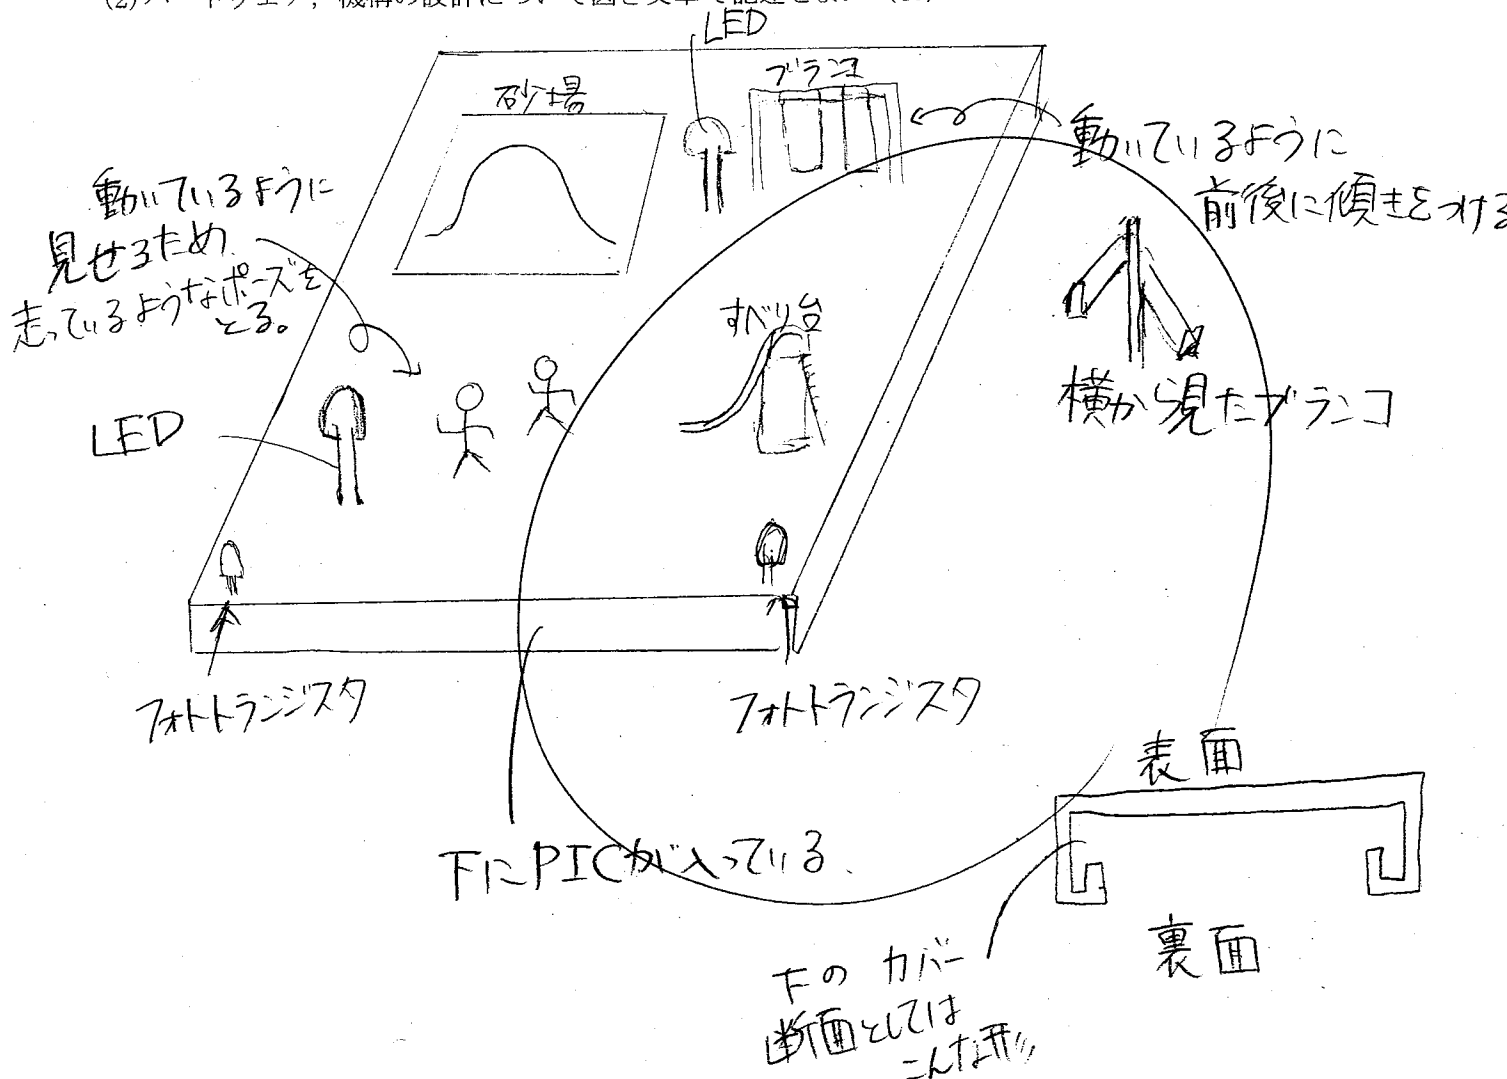 (2)ハードウェア，機構の設計について図と文章で記述せよ．
LED
砂場
ブランコ
動いているように
前後に傾きをつける
動いているように
見せるため
走っているようなポーズを
とる。
すべり台
横から見たブランコ
LED
フォトトランジスタ
フォトトランジスタ
表面
下にPICが入っている.
裏面
下のカバー
断面としては
こんな形